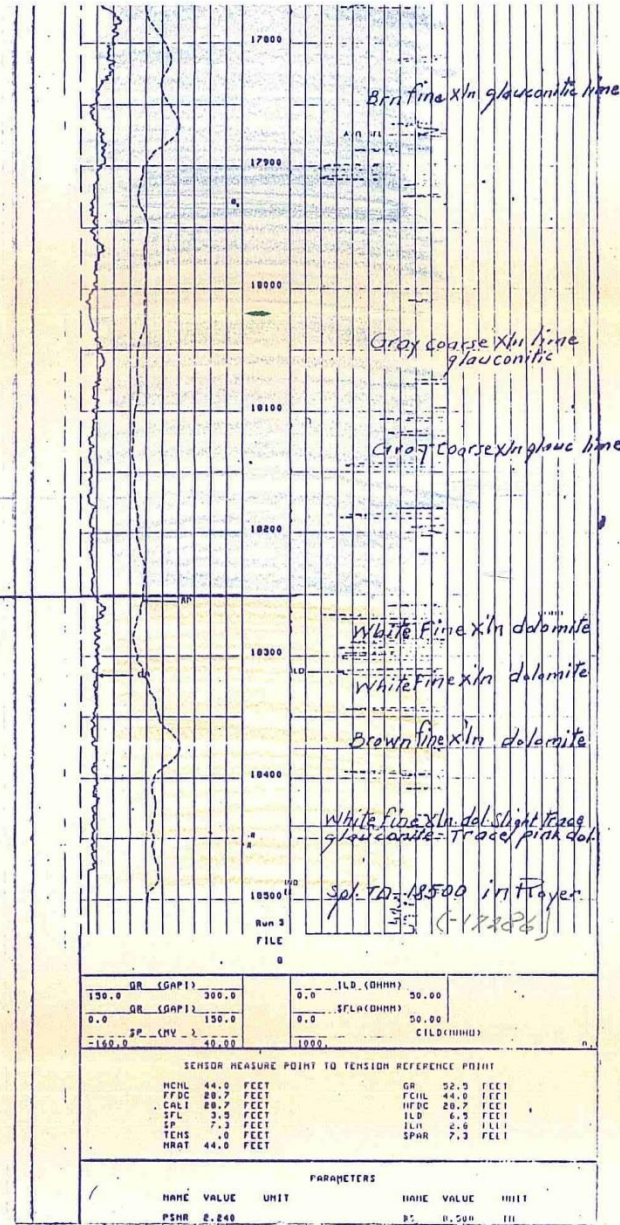 17800
Brn fine xln glauconitic lime
17900
18000
Gray coarse xln lime
glauconitic
18100
Gray coarse xln glauc lime
18200
White Fine x'ln dolomite
18300
ILD
White fine xln dolomite
Brown fine x'ln dolomite
18400
White fine xln. dol. Slight trace
glauconite - Trace pink dol.
18500
Spl. TD - 18500 in Royer
(-17286)
Run 3
FILE
8
GR (GAPI)
150.0 300.0
ILD (OHMM)
0.0 50.00
GR (GAPI)
0.0 150.0
SFLA(OHMM)
0.0 50.00
SP (MV)
-160.0 40.00
CILD(MMHO)
1000. 0.
SENSOR MEASURE POINT TO TENSION REFERENCE POINT
HCNL 44.0 FEET GR 52.5 FEET
FFDC 28.7 FEET FCNL 44.0 FEET
CALI 28.7 FEET NFDC 28.7 FEET
SFL 3.5 FEET ILD 6.5 FEET
SP 7.3 FEET ILM 2.6 FEET
TENS .0 FEET SPAR 7.3 FEET
NRAT 44.0 FEET
PARAMETERS
NAME VALUE UNIT NAME VALUE UNIT
PSNR 2.240 BS 8.500 IN